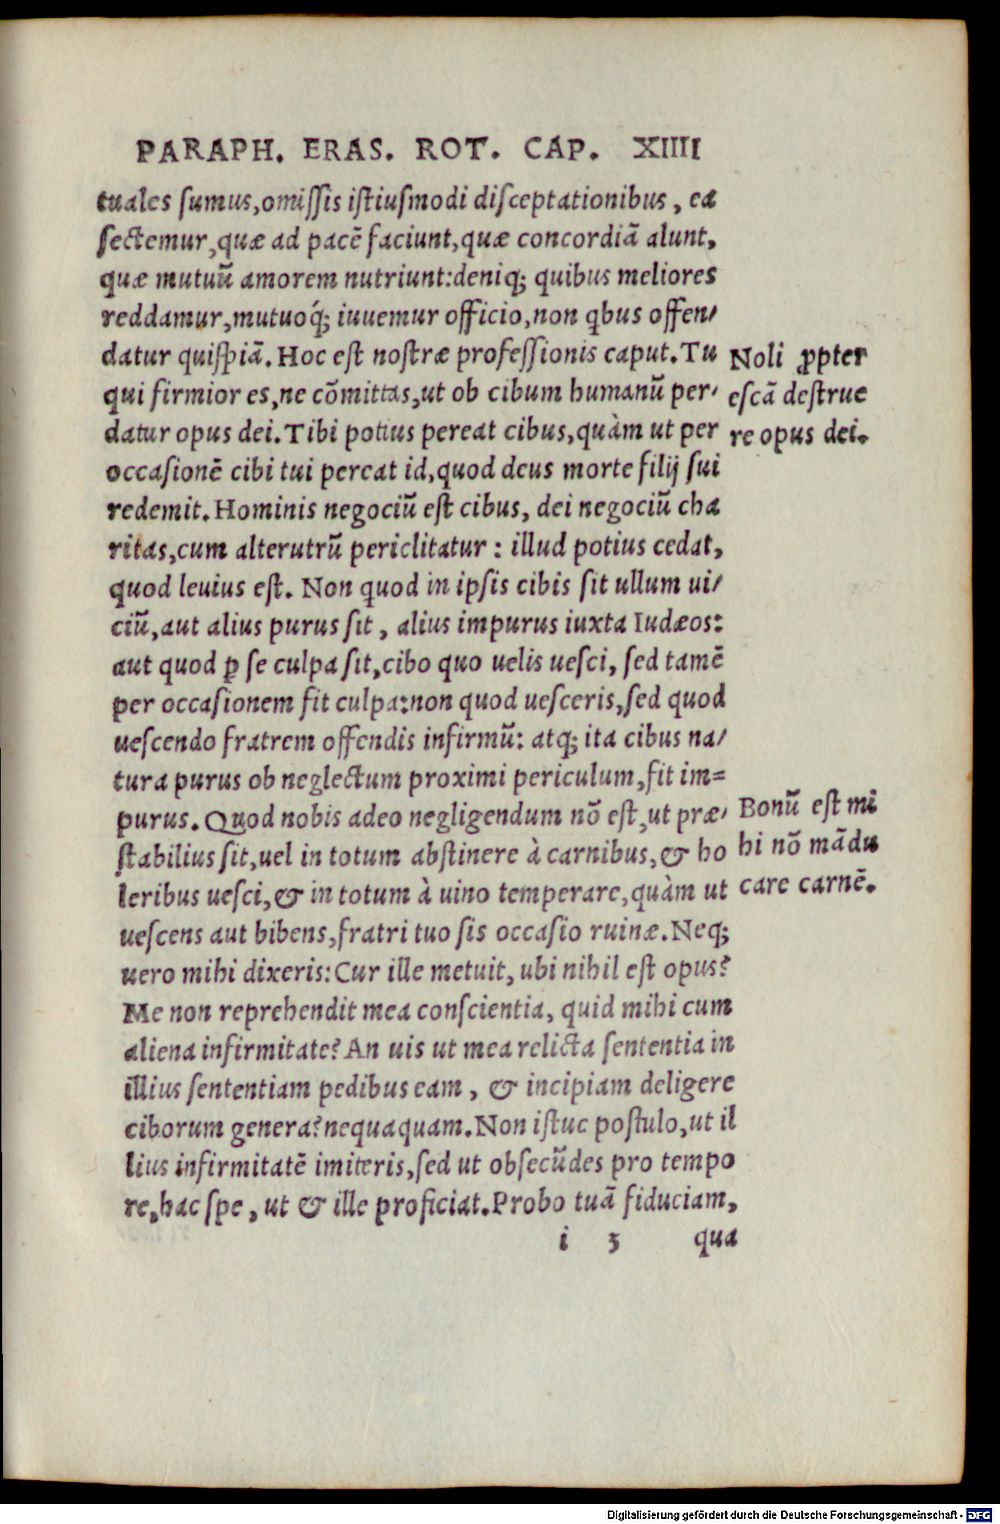 PARAPH. ERAS. ROT. CAP. XIIII
tuales ſumus,omiſſis iſtiuſmodi diſceptationibus, ea
ſectemur,quæ ad pacē faciunt,quæ concordiã alunt,
quæ mutuũ amorem nutriunt:deniq; quibus meliores
reddamur,mutuoq́; iuuemur officio,non qbus offen/
datur quiſpiã. Hoc eſt noſtræ profeſſionis caput. Tu
qui firmior es,ne cõmittas,ut ob cibum humanũ per/
datur opus dei. Tibi potius pereat cibus,quàm ut per
occaſionē cibi tui pereat id,quod deus morte filij ſui
redemit. Hominis negociũ eſt cibus, dei negociũ cha
ritas,cum alterutrũ periclitatur: illud potius cedat,
quod leuius eſt. Non quod in ipſis cibis ſit ullum ui/
ciũ,aut alius purus ſit, alius impurus iuxta Iudæos:
aut quod ꝑ ſe culpa ſit,cibo quo uelis ueſci, ſed tamē
per occaſionem fit culpa:non quod ueſceris,ſed quod
ueſcendo fratrem offendis infirmũ: atq; ita cibus na/
tura purus ob neglectum proximi periculum,fit im=
purus. Quod nobis adeo negligendum nõ eſt,ut præ/
ſtabilius ſit,uel in totum abſtinere à carnibus,& ho
leribus ueſci,& in totum à uino temperare,quàm ut
ueſcens aut bibens,fratri tuo ſis occaſio ruinæ. Neq;
uero mihi dixeris: Cur ille metuit, ubi nihil eſt opus?
Me non reprehendit mea conſcientia, quid mihi cum
aliena infirmitate? An uis ut mea relicta ſententia in
illius ſententiam pedibus eam, & incipiam deligere
ciborum genera?nequaquam. Non iſtuc poſtulo,ut il
lius infirmitatē imiteris,ſed ut obſecũdes pro tempo
re,hac ſpe, ut & ille proficiat. Probo tuã fiduciam,
i 3 qua
Noli ꝓpter
eſcã deſtrue
re opus dei.
Bonũ eſt mi
hi nõ mãdu
care carnē.
Digitalisierung gefördert durch die Deutsche Forschungsgemeinschaft - DFG